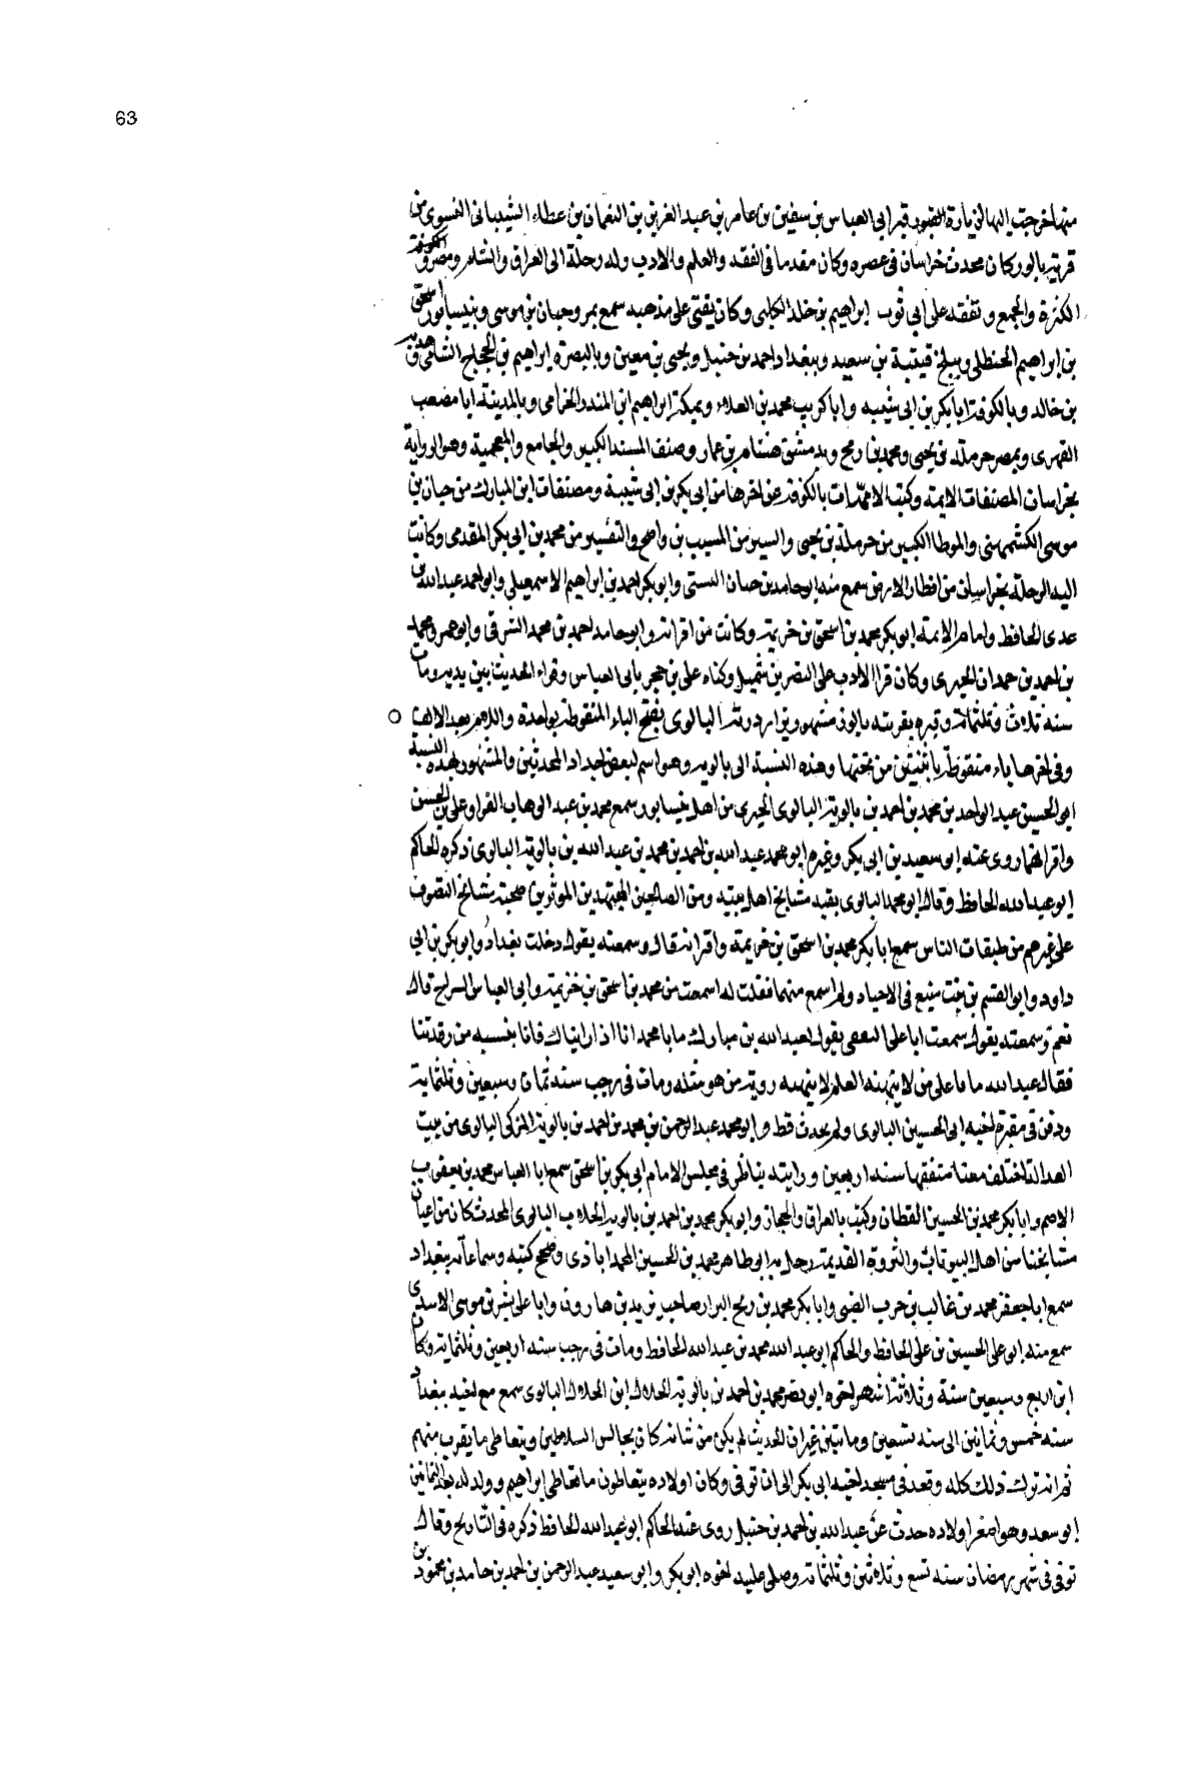 63
منها خرجت اليها لزيارة القبور قبر ابى العباس بن سفين بن عامر بن عبد العزيز بن النعمان بن عطاء الشيبانى النسوى من
قرية بالوز وكان محدث خراسان فى عصره وكان مقدما فى الفقه والعلم والادب وله رحلة الى العراق والشام ومصر والكوفة
الكثرة والجمع وتفقه على ابى ثور ابراهيم بن خلد الكلبى وكان يفتى على مذهبه سمع بمرو حبان بن موسى وبنيسابور اسحق
بن ابراهيم الحنظلى وببلخ قتيبة بن سعيد وببغداد احمد بن حنبل ويحيى بن معين وبالبصرة ابراهيم بن الحجاج الشامى وهدبة
بن خالد وبالكوفة ابا بكر بن ابى شيبه وابا كريب محمد بن العلاء وبمكة ابراهيم ابن المنذر الخزامى وبالمدينة ابا مصعب
الزهرى وبمصر حرملة بن يحيى ومحمد بن رمح وبدمشق هشام بن عمار وصنف المسند الكبير والجامع والمعجمية وهو الرواية
بخراسان المصنفات الايمة وكتب الامهات بالكوفة عن اخرها من ابى بكر بن ابى شيبة ومصنفات ابن المبارك من حبان بن
موسى الكشميهنى والموطا الكبير من حرملة بن يحيى والسير من المسيب بن واضح والتفسير من محمد بن ابى بكر المقدمى وكانت
اليه الرحلة بخراسان من اقطار الارض سمع منه ابو حامد بن حبان البستى وابو بكر احمد بن ابراهيم الاسمعيلى وابو احمد عبد الله بن
عدى الحافظ وامام الايمة ابو بكر محمد بن اسحق بن خزيمة وكانت من اقرانه وابو حامد احمد بن محمد الشرقى وابو عمرو محمد
بن احمد بن حمدان الحيرى وكان قرا الادب على النضر بن شميل وكناه على بن حجر بابى العباس وقراء الحديث بين يديه ومات
سنه ثلاث وثلثمائة وقبره بقريته بالوز مشهور يزار وزرته البالوى بفتح الباء المنقوطة بواحدة واللام بعد الالف
وفى اخرها ياء منقوطة باثنيتين من تحتها وهذه النسبة الى بالويه وهو اسم لبعض اجداد المحدثين والمشهور بهذه النسبة
ابو الحسين عبد الواحد بن محمد بن احمد بن بالويه البالوى الحيرى من اهل نيسابور سمع محمد بن عبد الوهاب الفرا وعلى بن الحسن
واقرانهما روى عنه ابو سعيد بن ابى بكر وغيره ابو محمد عبد الله بن احمد بن محمد بن عبد الله بن بالويه البالوى ذكره الحاكم
ابو عبد الله الحافظ وقال ابو محمد البالوى بقيه مشايخ اهل بيته ومن الصالحين المجتهدين الموثرين صحبة مشايخ التصوف
على غيرهم من طبقات الناس سمع ابا بكر محمد بن اسحق بن خزيمة واقرانه قال وسمعته يقول دخلت بغداد وابو بكر بن ابى
داود وابو القسم بن بنت منيع فى الاحياء ولم اسمع منهما فقلت له اسمعت من محمد بن اسحق بن خزيمة وابى العباس السراج قال
نعم وسمعته يقول سمعت ابا على يقول لعبد الله بن مبارك يا با محمد انا اذا رايناك من رقدتنا
فقال عبد الله ومات فى رجب سنه ثمان وسبعين وثلثماية
ودفن فى مقبرة اخيه ابى الحسين البالوى ولم يحدث قط وابو محمد عبد الرحمن بن محمد بن احمد بن بالويه المزكى البالوى من بيت
العدالة اختلف معنا متفقها سنه اربعين ورايته يناظر فى مجلس الامام ابى بكر بن اسحق سمع ابا العباس محمد بن يعقوب
الاصم وابا بكر محمد بن الحسين القطان وكتب بالعراق والحجاز وابو بكر محمد بن احمد بن بالويه الجلاب البالوى المحدث كان من اعيان
مشايخنا من اهل البيوتات والثروة القديمة رحل به ابو طاهر محمد بن الحسين المحمداباذى وصحح كتبه وسماعاته ببغداد
سمع ابا جعفر محمد بن غالب بن حرب الضبى وابا بكر محمد بن ربح البزار صاحب يزيد بن هارون وابا على بشر بن موسى الاسدى
سمع منه ابو على الحسين بن على الحافظ والحاكم ابو عبد الله محمد بن عبد الله الحافظ ومات فى رجب سنه اربعين وثلثماية وكان
ابن اربع وسبعين سنة وثلاثة اشهر اخوه ابو نصر محمد بن احمد بن بالويه الجلاب ابن الجلاب البالوى سمع مع اخيه ببغداد
سنه خمس وثمانين الى سنه تسعين ومايتين غير ان الحديث لم يكن من شانه كان يجالس السلاطين ويتعاطى ما يقرب منهم
ثم انه ترك ذلك كله وقعد فى مسجد اخيه ابى بكر الى ان توفى وكان اولاده يتعاطون ما تعاطى ابراهيم وولد له بعد الثمانين
ابو سعد وهو اصغر اولاده حدث عن عبد الله بن احمد بن حنبل روى عنه الحاكم ابو عبد الله الحافظ ذكره فى التاريخ وقال
توفى فى شهر رمضان سنه تسع وثلاثين وثلثماته وصلى عليه اخوه ابو بكر وابو سعيد عبد الرحمن بن احمد بن حامد بن محمود بن